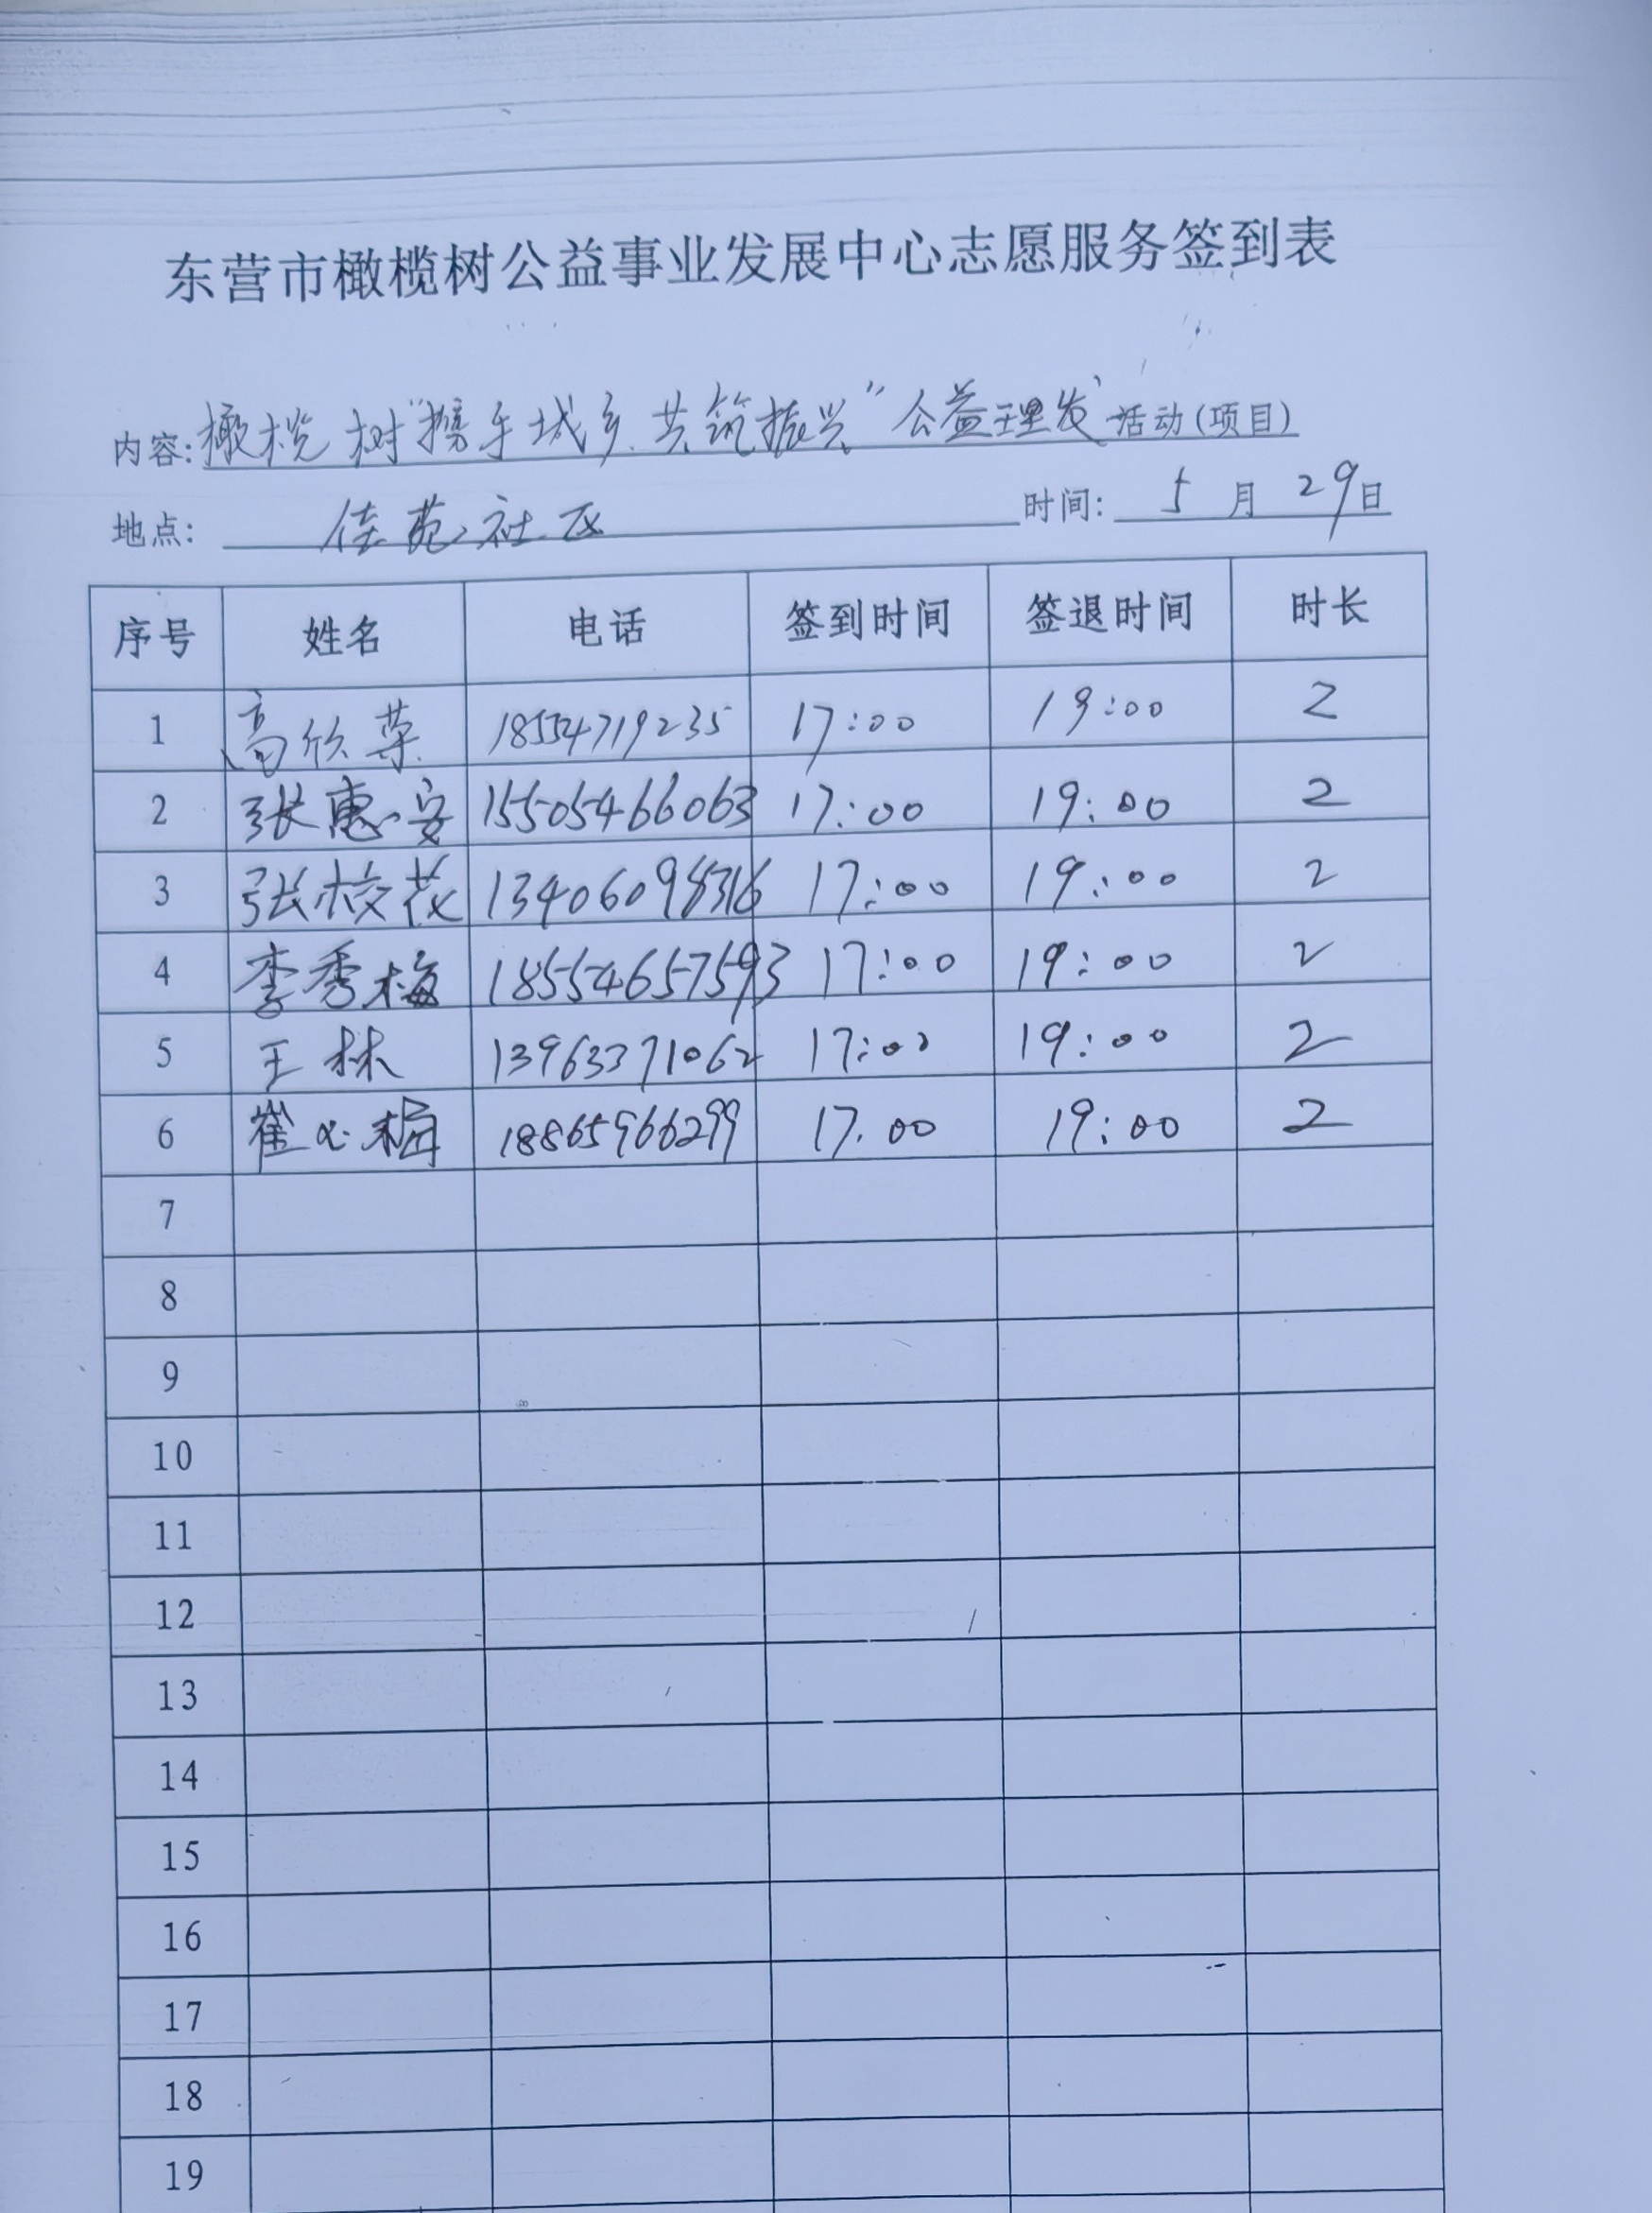 东营市橄榄树公益事业发展中心志愿服务签到表
内容: 橄榄树"携手城乡.共筑振兴"公益理发 活动(项目)
地点: 佳苑社区 时间: 5 月 29 日
序号 姓名 电话 签到时间 签退时间 时长
1 高欣 18554719235 17:00 19:00 2
2 张惠安 15505466063 17:00 19:00 2
3 张校花 13406098316 17:00 19:00 2
4 李秀梅 18554657593 17:00 19:00 2
5 王林 13963371062 17:00 19:00 2
6 崔 梅 18865966299 17.00 19:00 2
7
8
9
10
11
12
13
14
15
16
17
18
19